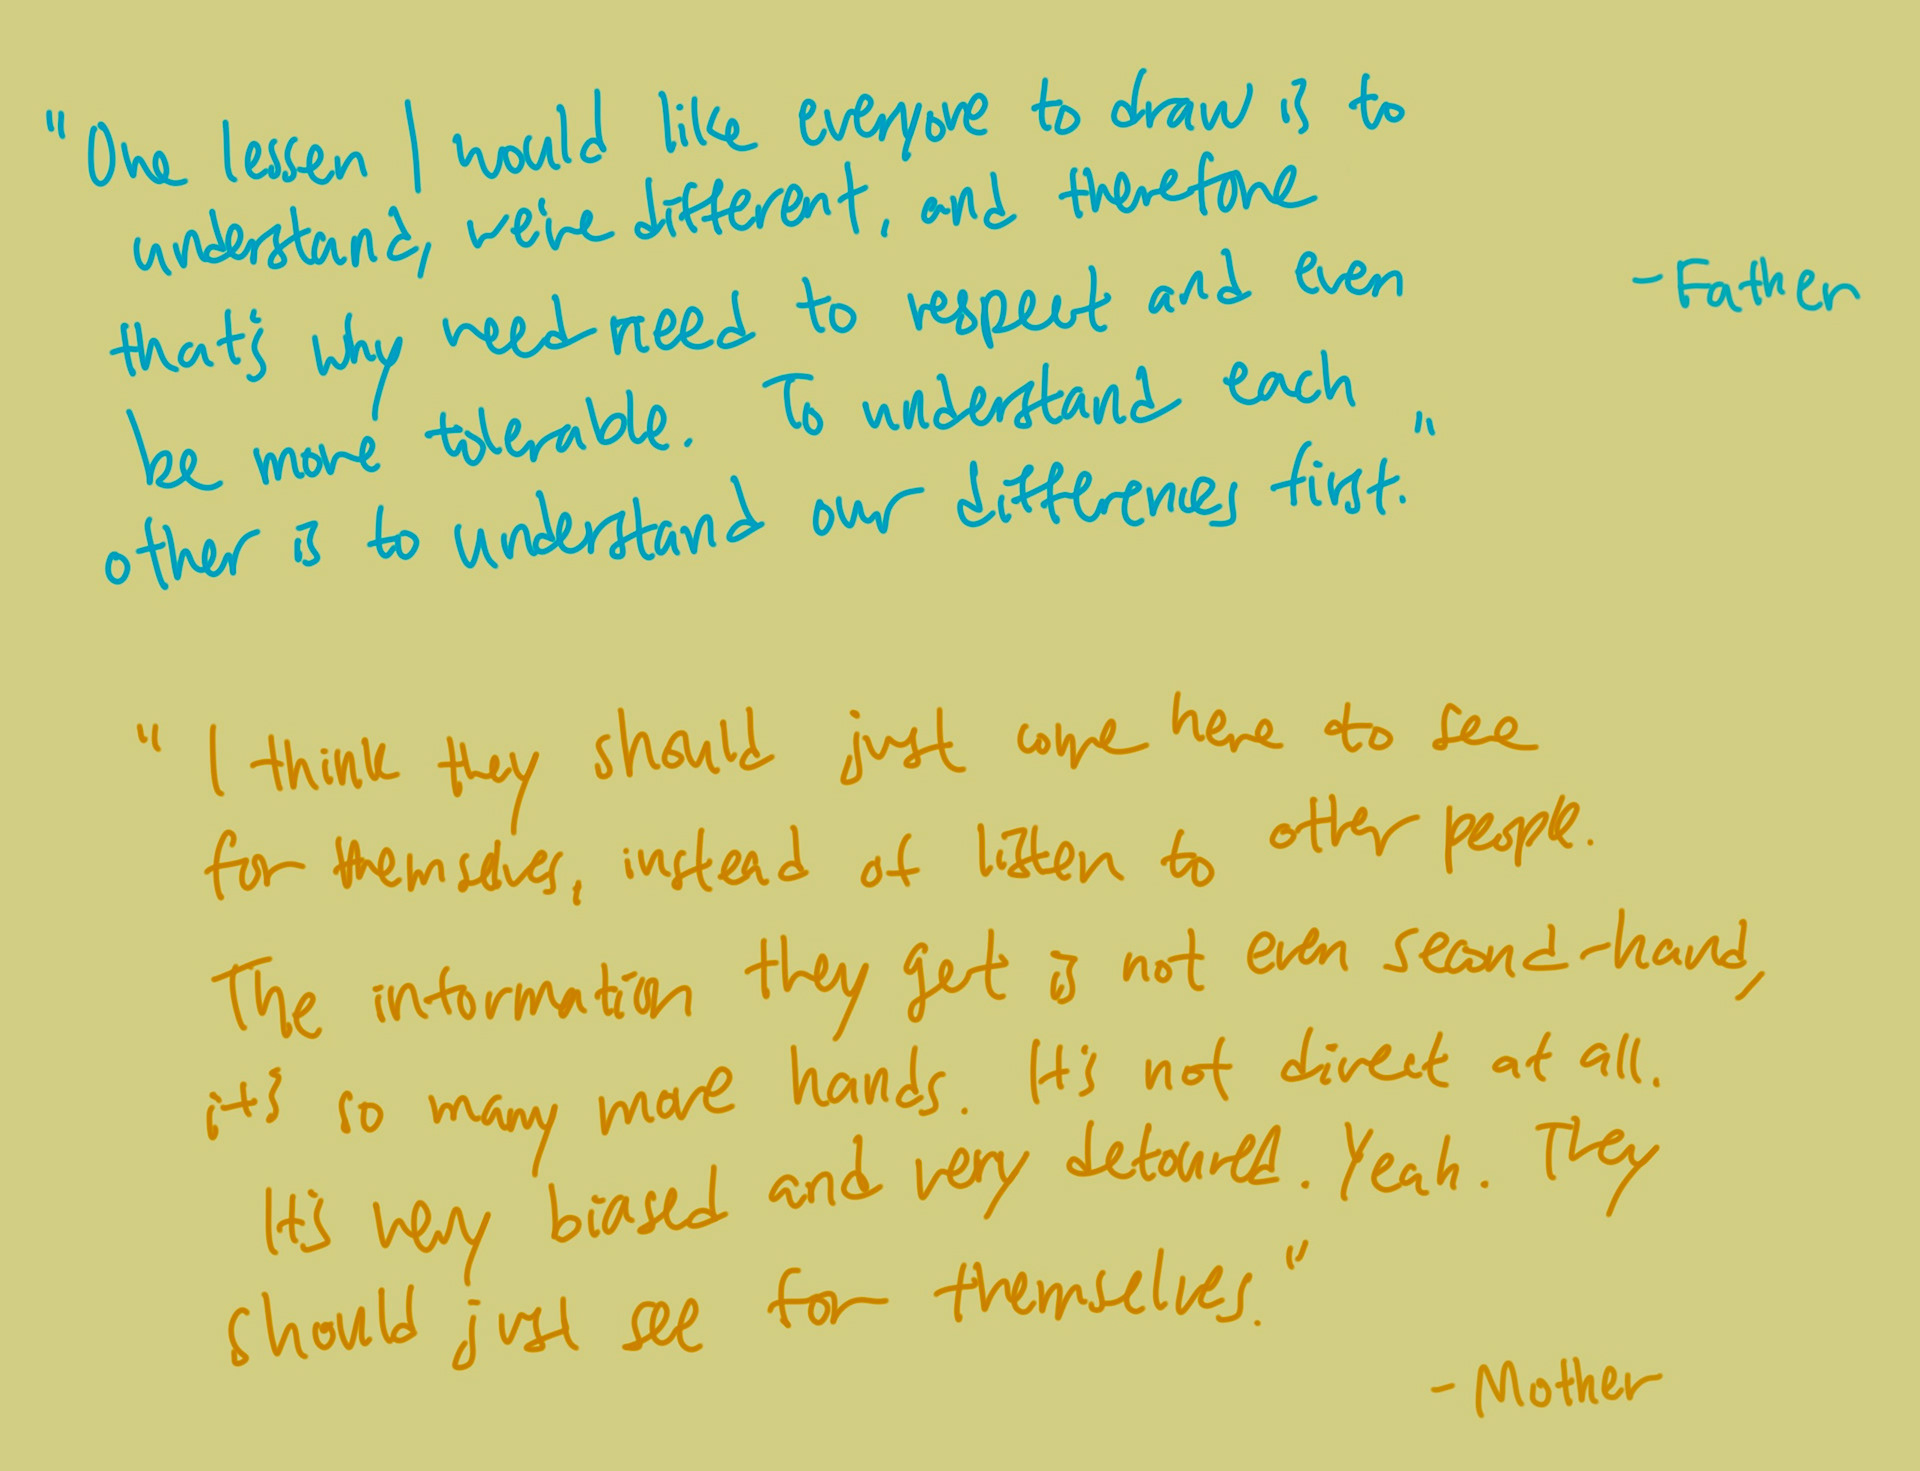 "One lessen I would like everyone to draw is to
understand, we're different, and therefore
that's why need need to respect and even
- Father
be more tolerable. To understand each
other is to understand our differences first."
"I think they should just come here to see
for themselves, instead of listen to other people.
The information they get is not even second-hand,
it's so many more hands. It's not direct at all.
It's very biased and very detoured. Yeah. They
should just see for themselves."
- Mother